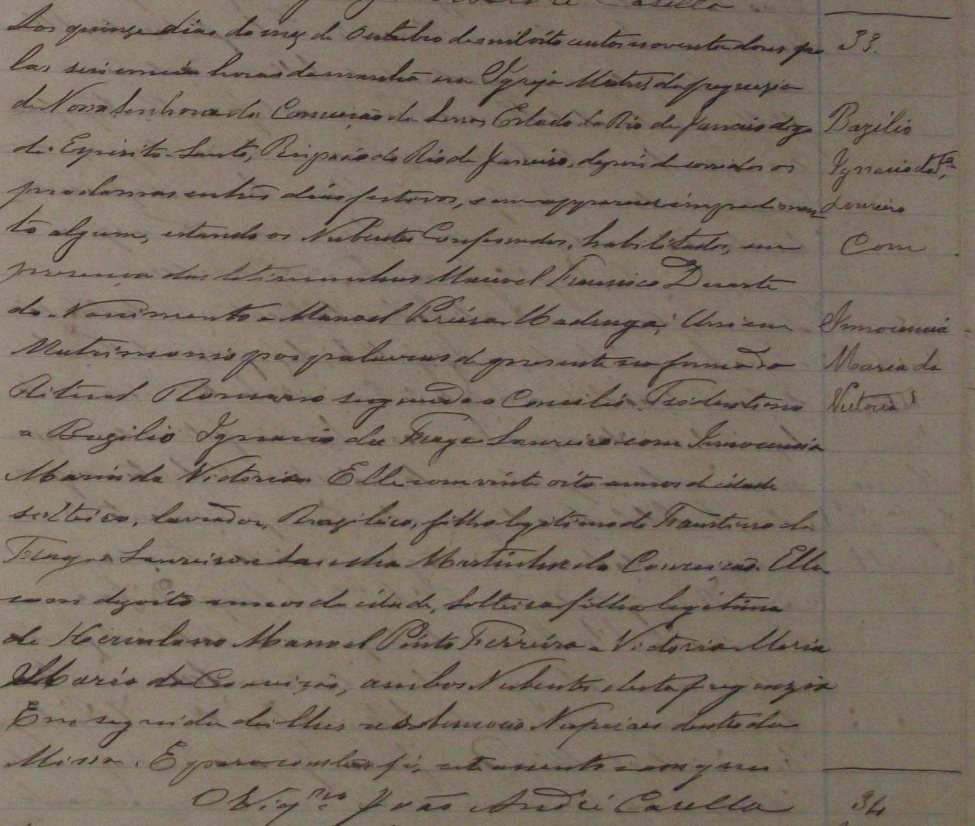 João André Casella
Aos quinze dias do mez de Outubro de mil oito centos noventa dous, pe
las seis e meia horas da manhã em Igreja Matriz da freguezia
de Nossa Senhora da Conceição da Serra, Estado do Rio de Janeiro digo
do Espirito Santo, Bispado do Rio de Janeiro, depois de corridos os
proclamas em tres dias festivos, sem apparecer impedimen
to algum, estando os Nubentes Confessados, habilitados, em
presença das testimunhas Manoel Francisco Duarte
do Nascimento e Manoel Pereira Madruga, Uni em
Matrimonio por palavras de presente na forma do
Ritual Romano segundo o Concilio Tridentino
a Bazilio Ignacio da Fraga Loureiro com Innocencia
Maria da Victoria. Elle com vinte oito annos de idade
solteiro, lavrador, Brazileiro, filho legitimo de Faustino da
Fraga Loureiro e Martinha da Conceição. Ella
com dezoito annos de idade, Solteira filha legitima
de Herculano Manoel Pinto Ferreira e Victoria Maria
Maria da Conceição, ambos Nubentes desta freguezia
Em seguida dei lhes as bençãos Nupciaes dentro da
Missa. E para constar fiz este assento e assignei
O Vigro João André Casella
33.
Bazilio
Ignacio da Fa
Loureiro
Com
Innocencia
Maria da
Victoria
34